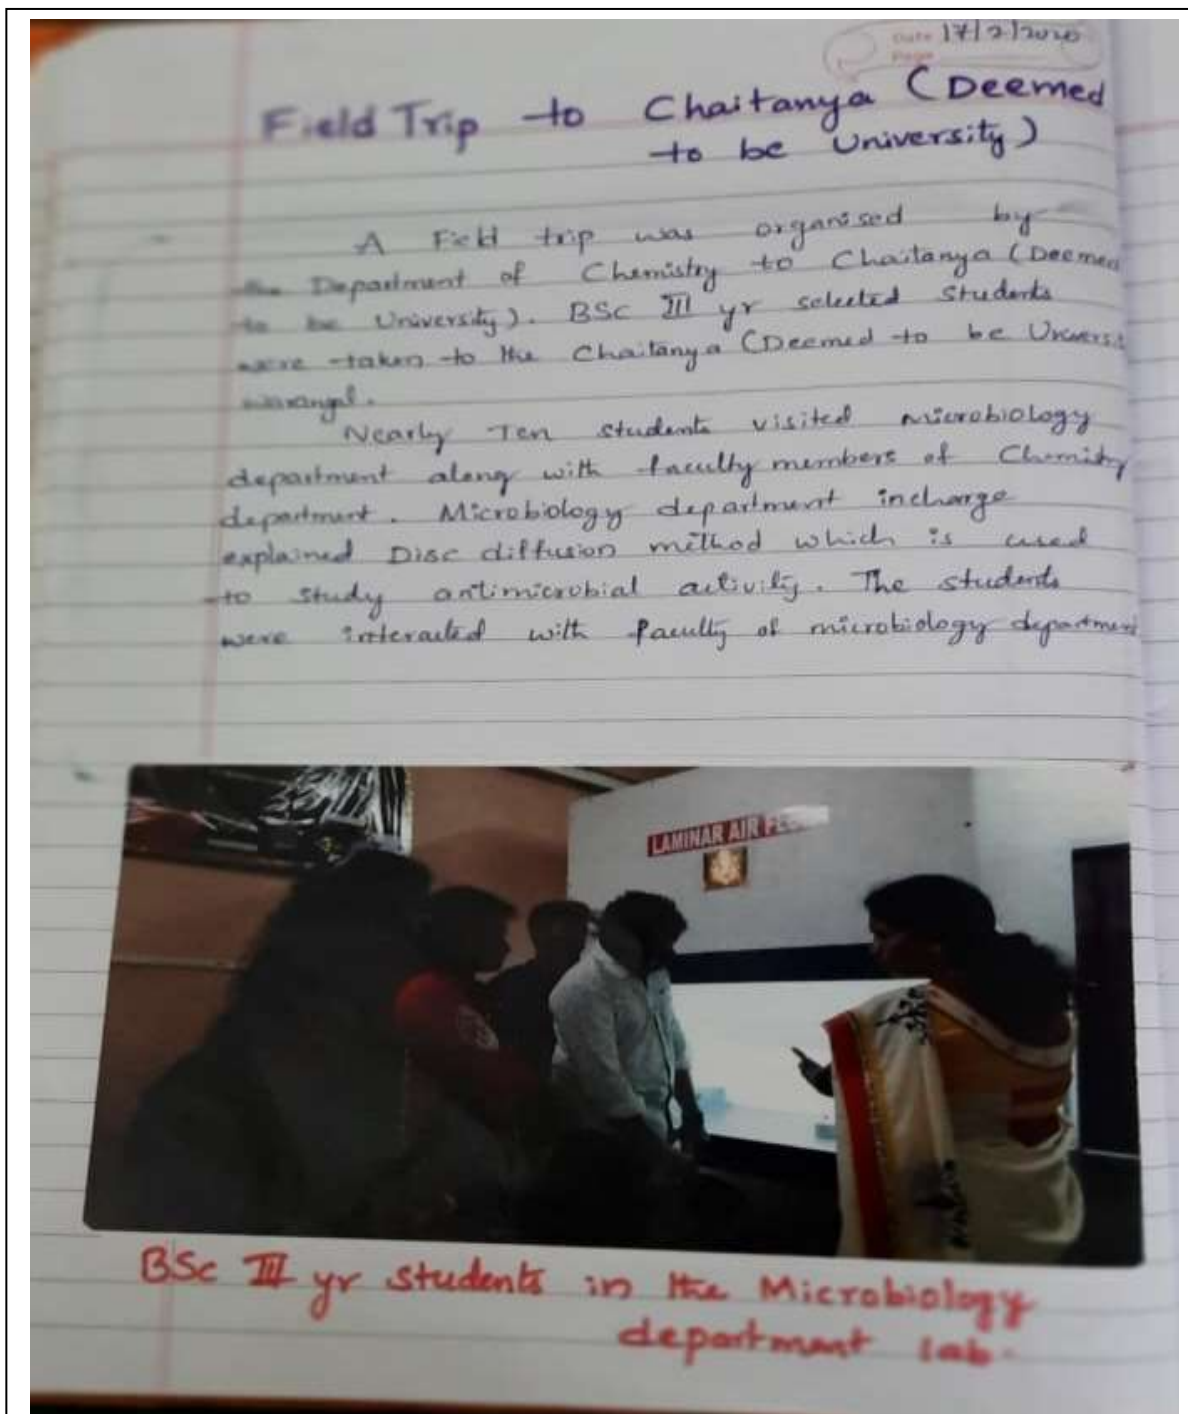 Date 17/2/2020
Page
Field Trip to Chaitanya (Deemed
to be University)
A Field trip was organised by
the Department of Chemistry to Chaitanya (Deemed
to be University). BSc III yr selected students
were taken to the Chaitanya (Deemed to be Universi
warangal.
Nearly Ten students visited microbiology
department along with faculty members of Chemistry
department. Microbiology department incharge
explained Disc diffusion method which is used
to study antimicrobial activity. The students
were interacted with faculty of microbiology department
LAMINAR AIR FLOW
BSc III yr students in the Microbiology
department lab.